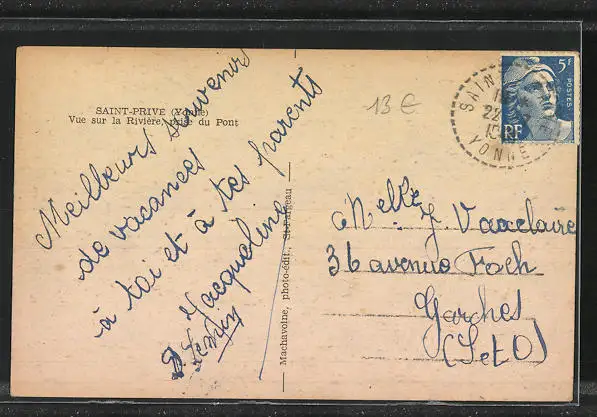 SAINT-PRIVÉ (Yonne)
Vue sur la Rivière, prise du Pont
Meilleurs souvenirs
de vacances
à toi et à tes parents
Jacqueline
Machavoine, photo-édit., St-Fargeau
13 €
5F
POSTES
RF
SAIN
22
YONNE
Melle J. Vauclaire
36 avenue Foch
Garches
(S et O)